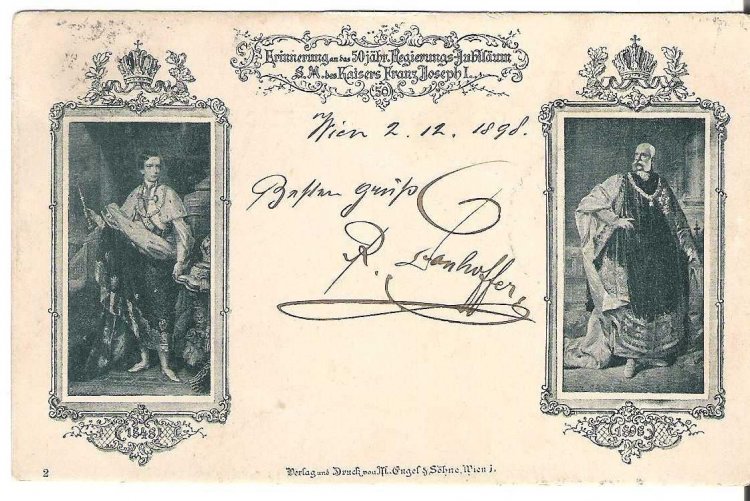 Erinnerung an das 50jähr. Regierungs-Jubiläum
S. M. des Kaisers Franz Joseph I.
50
Wien 2. 12. 1898.
Besten Gruß
R.
1848
1898
2
Verlag und Druck von M. Engel & Söhne, Wien I.